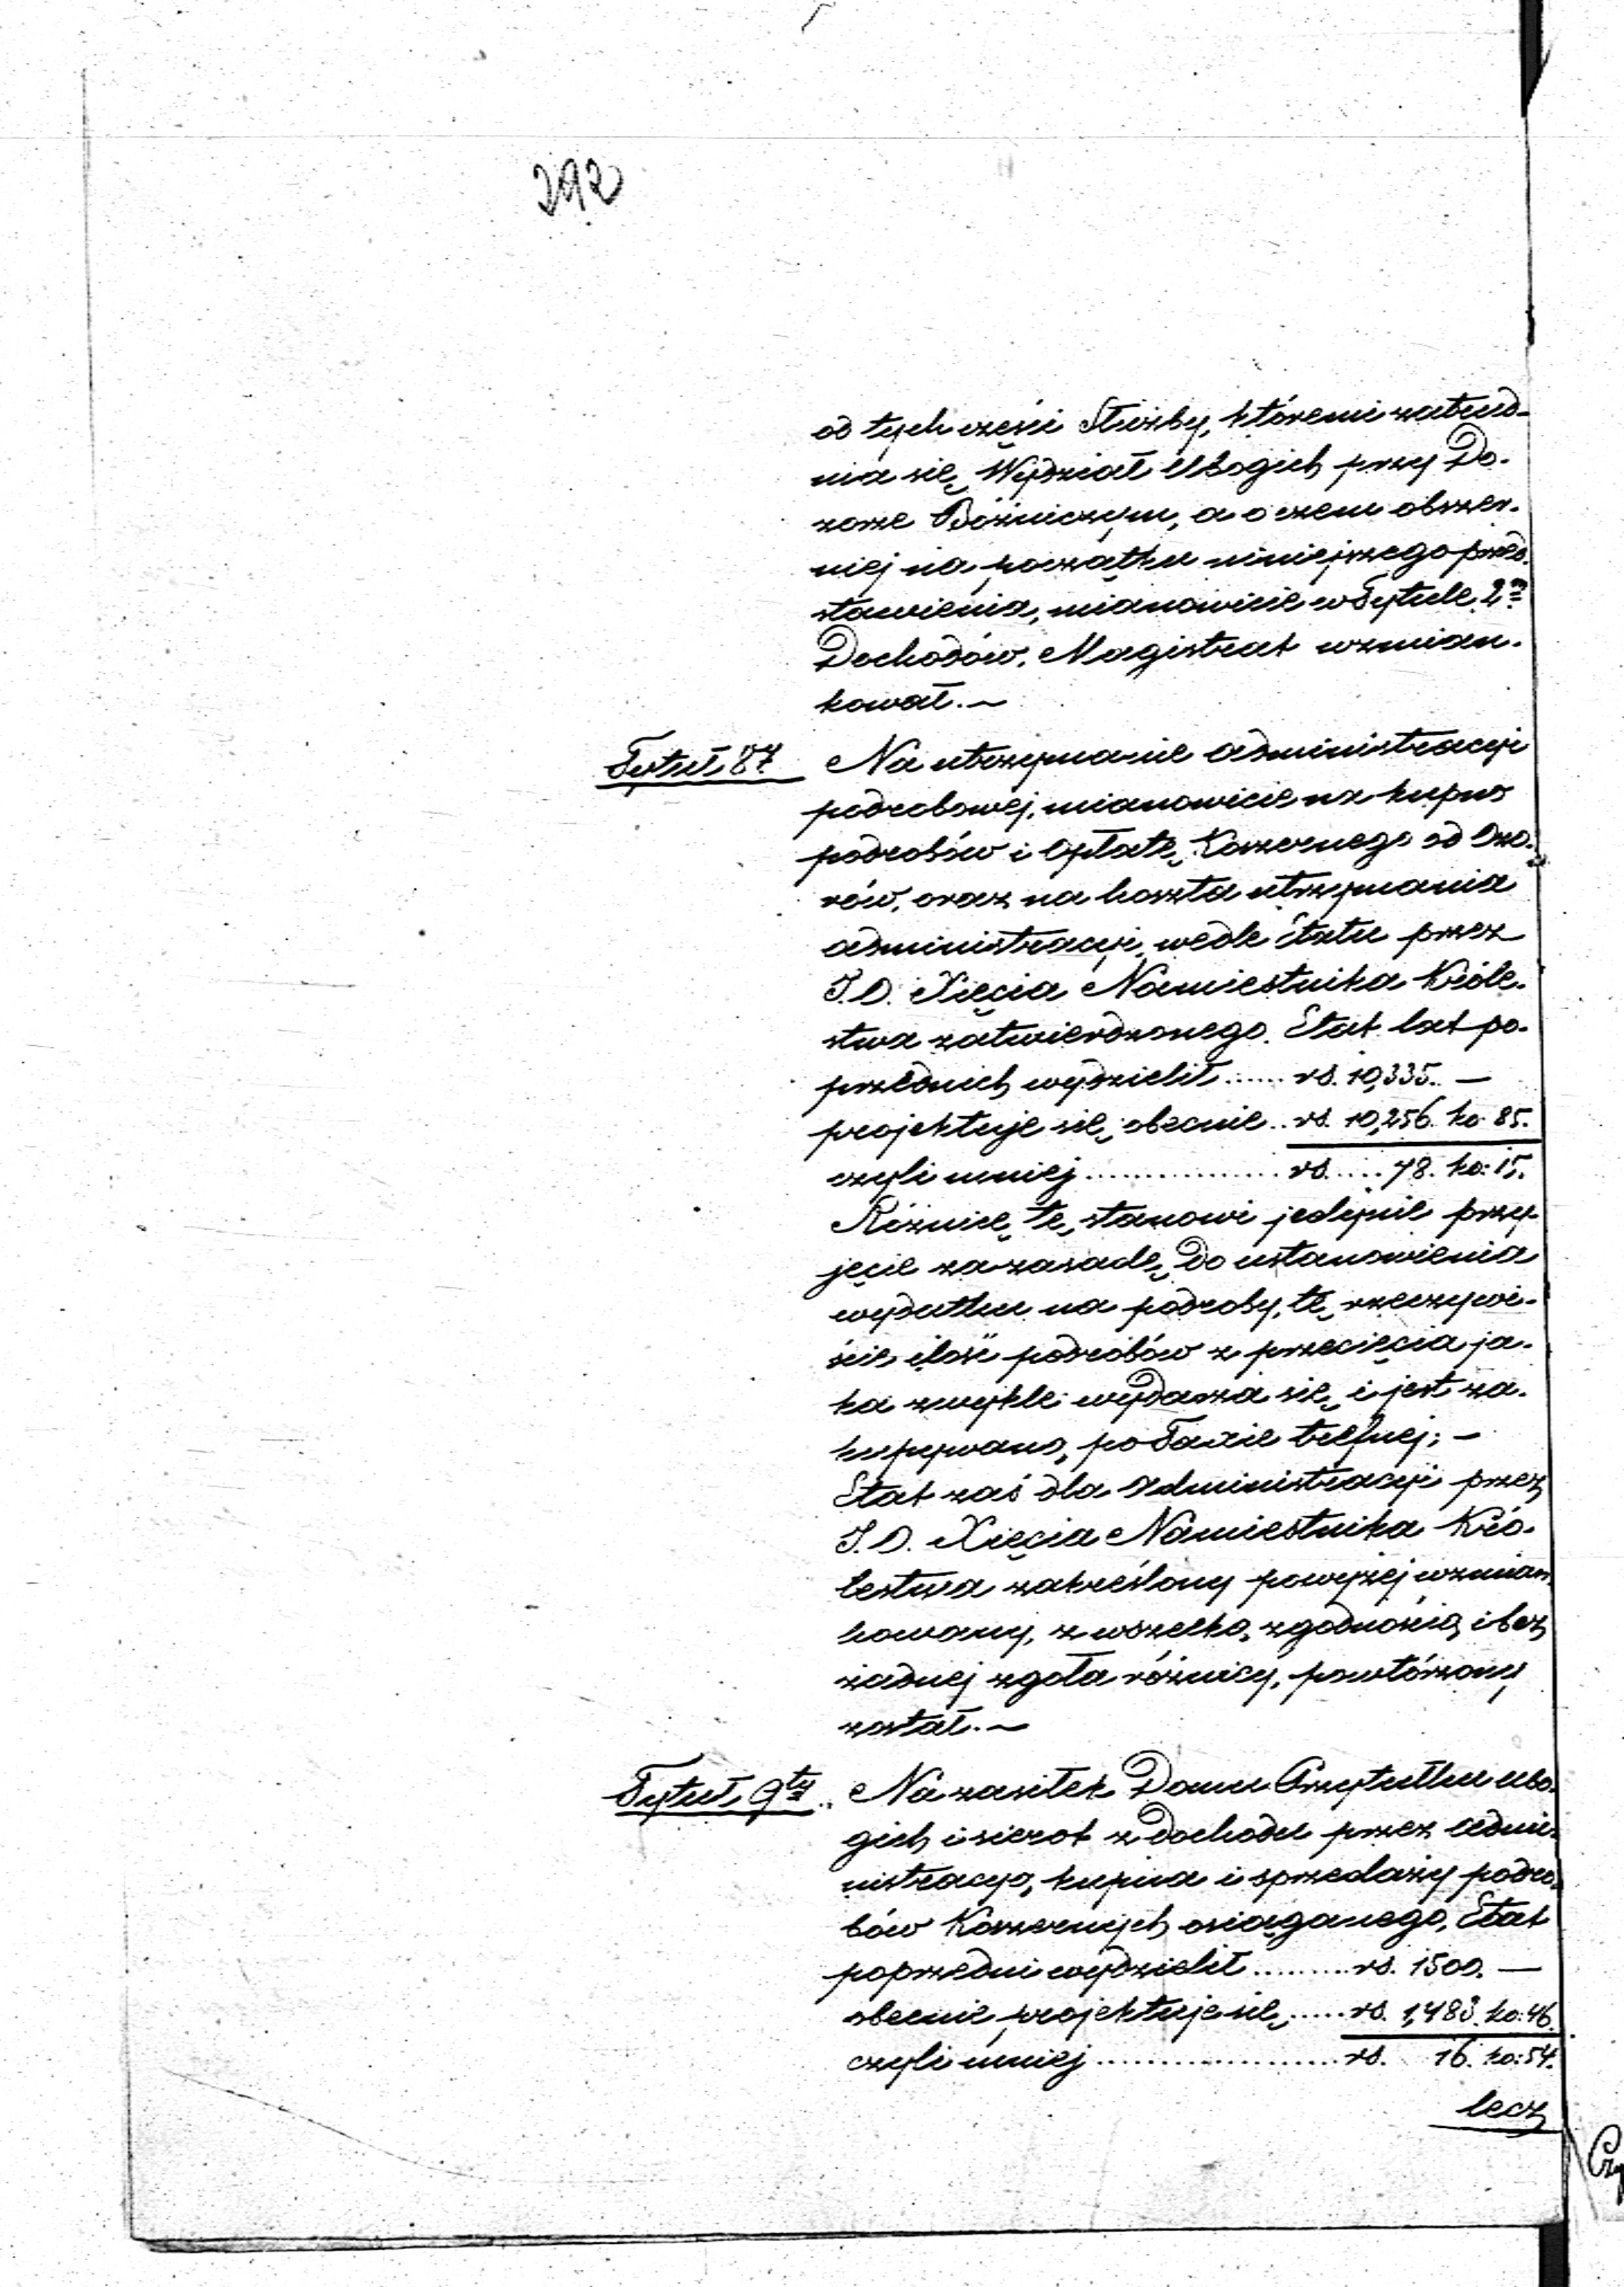 292
od tych części Służby, któremi zatrud-
nia się Wydział Ubogich przy Do-
zorze Bóżniczym, a o czem obszer-
niej na początku niniejszego przed-
stawienia, mianowicie w Tytule 2m
Dochodów, Magistrat wzmian-
kował.—
Tytuł 8y. Na utrzymanie administracyi
podrobowej, mianowicie na kupno
podrobów i opłatę Koszernego od Ozo-
rów, oraz na koszta utrzymania
administracyi, wedle Etatu przez
J.O. Xięcia Namiestnika Króle-
stwa zatwierdzonego. Etat lat po-
przednich wydzielił ...... rs. 10,335. —
projektuje się obecnie .. rs. 10,256. ko: 85.
czyli mniej ................ rs. .... 78. ko: 15.
Różnicę tę stanowi jedynie przy-
jęcie za zasadę do ustanowienia
wydatku na podroby, tę rzeczywi-
ście ilość podrobów z przecięcia ja-
ka zwykle wydarza się i jest za-
kupywaną po Taxie trefnej; —
Etat zaś dla Administracyi przez
J.O. Xięcia Namiestnika Kró-
lestwa zakreślony powyżej wzmian-
kowany, z wszelką zgodnością i bez
żadnej zgoła różnicy, powtórzony
został.—
Tytuł 9ty. Na zasiłek Domu Przytułku ubo-
gich i sierot z dochodu przez Admi-
nistracyą kupna i sprzedaży podro-
bów Koszernych osiąganego, Etat
poprzedni wydzielił ......... rs. 1500. —
obecnie projektuje się ...... rs. 1,483. ko: 46.
czyli mniej .................... rs. 16. ko: 54.
lecz